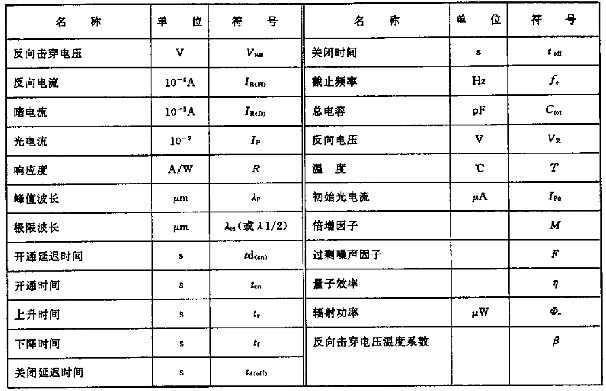 名 称 单 位 符 号 名 称 单 位 符 号
反向击穿电压 V 关闭时间 s t off
反向电流 截止频率 Hz
暗电流 总电容 pF C tot
光电流 I P 反向电压 V V R
响应度 A/W R 温 度 ℃ T
峰值波长 μm λP 初始光电流 μA I P0
极限波长 μm (或 λ 1/2) 倍增因子 M
开通延迟时间 s td(on) 过剩噪声因子 F
开通时间 s ton 量子效率 η
上升时间 s tr 辐射功率 μW Φe
下降时间 s tf 反向击穿电压温度系数 β
关闭延迟时间 s td(off)